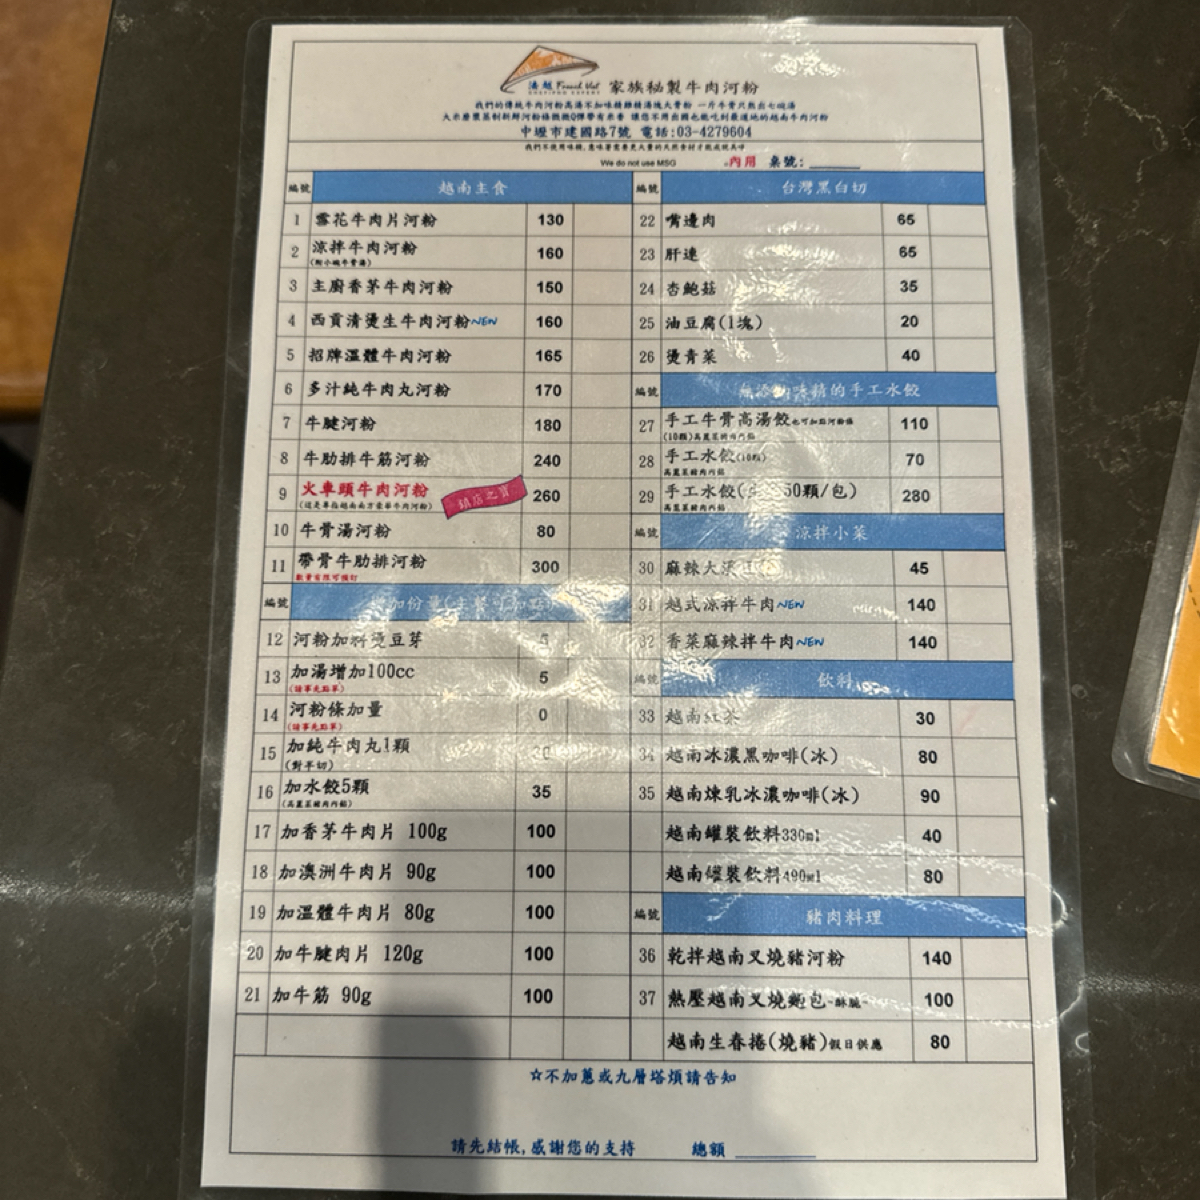 湯越 French Viet 家族秘製牛肉河粉
我們的傳統牛肉河粉高湯不加味精雞精湯塊大骨粉 一斤牛骨只熬出七碗湯
中壢市建國路7號 電話:03-4279604
We do not use MSG 內用 桌號:
編號 越南主食
1 雪花牛肉片河粉 130
2 涼拌牛肉河粉 160
(附小碗牛骨湯)
3 主廚香茅牛肉河粉 150
4 西貢清燙生牛肉河粉NEW 160
5 招牌溫體牛肉河粉 165
6 多汁純牛肉丸河粉 170
7 牛腱河粉 180
8 牛肋排牛筋河粉 240
9 火車頭牛肉河粉 鎮店之寶 260
(這是專指越南南方豪華牛肉河粉)
10 牛骨湯河粉 80
11 帶骨牛肋排河粉 300
數量有限可預訂
編號 加份量
12 河粉加料燙豆芽 5
13 加湯增加100cc 5
(請事先點單)
14 河粉條加量 0
(請事先點單)
15 加純牛肉丸1顆
(對半切)
16 加水餃5顆 35
(高麗菜豬肉內餡)
17 加香茅牛肉片 100g 100
18 加澳洲牛肉片 90g 100
19 加溫體牛肉片 80g 100
20 加牛腱肉片 120g 100
21 加牛筋 90g 100
編號 台灣黑白切
22 嘴邊肉 65
23 肝連 65
24 杏鮑菇 35
25 油豆腐(1塊) 20
26 燙青菜 40
編號 無添加味精的手工水餃
27 手工牛骨高湯餃也可加點河粉條 110
(10顆)高麗菜豬肉內餡
28 手工水餃(10顆) 70
高麗菜豬肉內餡
29 手工水餃( 50顆/包) 280
高麗菜豬肉內餡
編號 涼拌小菜
30 麻辣大 45
31 越式涼拌牛肉NEW 140
32 香菜麻辣拌牛肉NEW 140
編號 飲料
33 越南紅茶 30
34 越南冰濃黑咖啡(冰) 80
35 越南煉乳冰濃咖啡(冰) 90
越南罐裝飲料330ml 40
越南罐裝飲料490ml 80
編號 豬肉料理
36 乾拌越南叉燒豬河粉 140
37 熱壓越南叉燒麵包-酥脆- 100
越南生春捲(燒豬)假日供應 80
☆不加蔥或九層塔煩請告知
請先結帳,感謝您的支持 總額